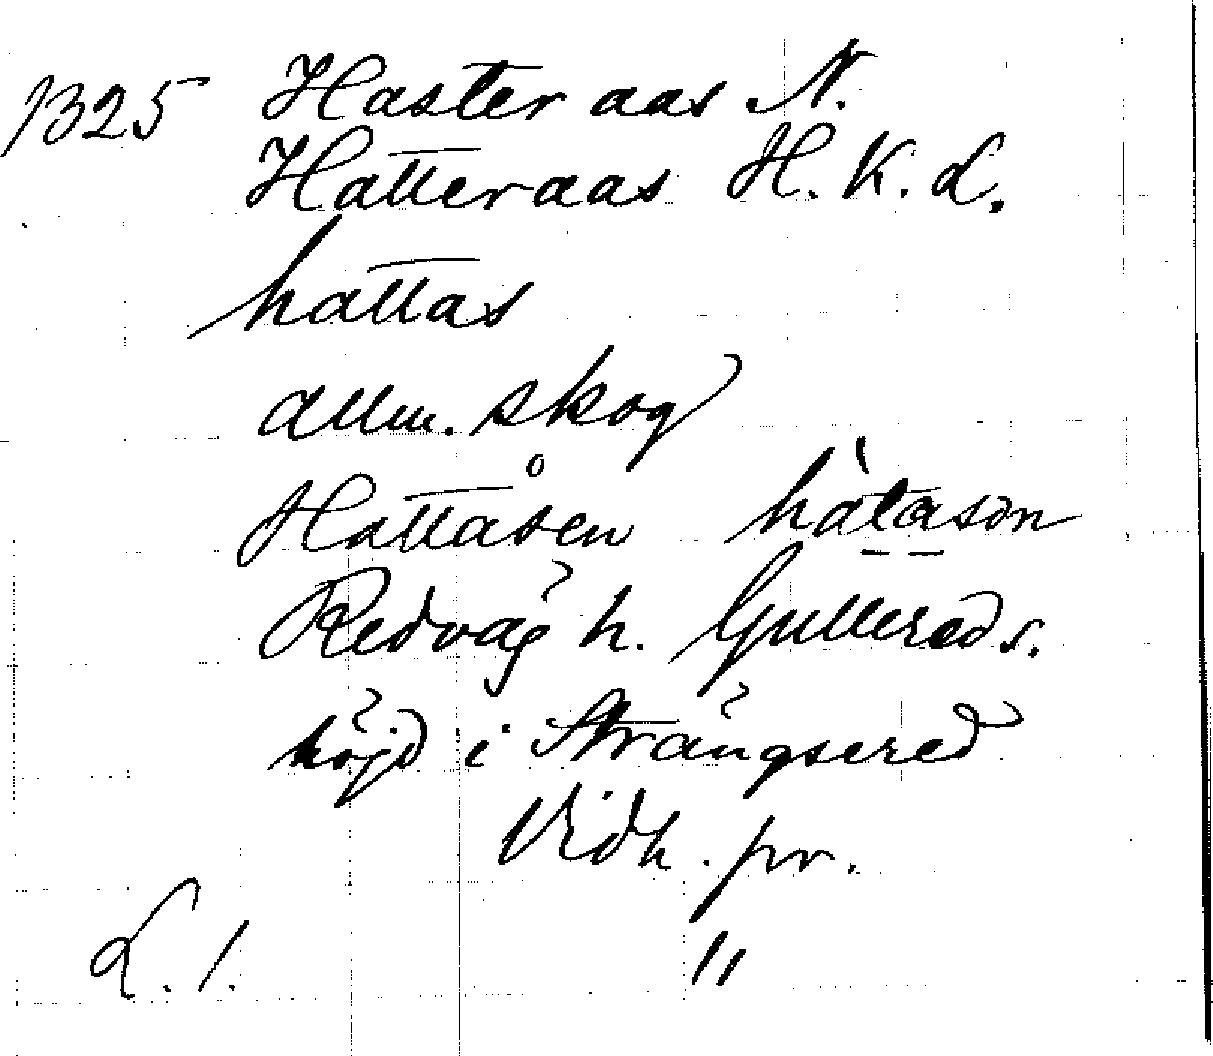 1325 Hasteraas N.
Hatteraas H. K. L.
hattas
allm. skog
Hattåsen hàtasәn
Redväg h. Gullereds.
höjd i Strängsered
Vidh. pr.
L. 1. "